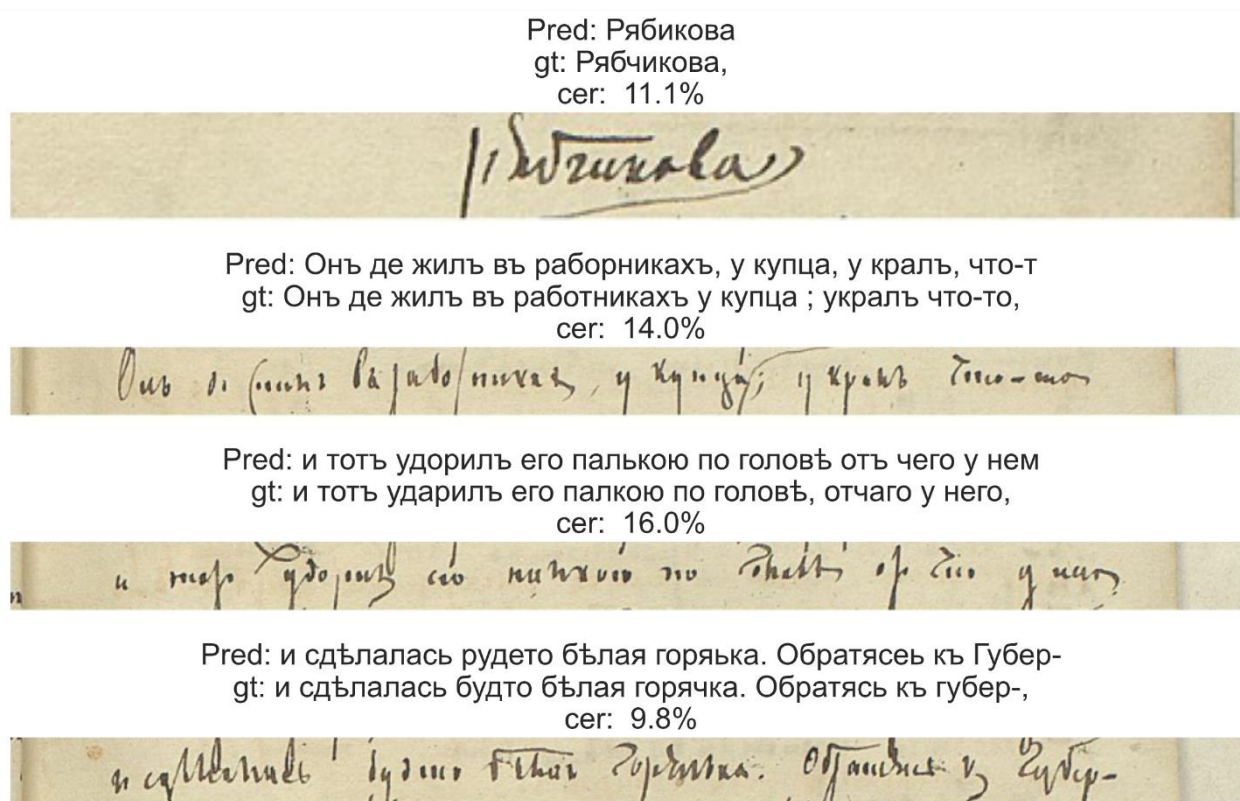 Pred: Рябикова
gt: Рябчикова,
cer: 11.1%
Рябчикова
Pred: Онъ де жилъ въ раборникахъ, у купца, у кралъ, что-т
gt: Онъ де жилъ въ работникахъ у купца ; укралъ что-то,
cer: 14.0%
Онъ де жилъ въ работникахъ, у купца; укралъ что-то
Pred: и тотъ удорилъ его палькою по головѣ отъ чего у нем
gt: и тотъ ударилъ его палкою по головѣ, отчаго у него,
cer: 16.0%
и тотъ ударилъ его палкою по головѣ отъ чего у него
Pred: и сдѣлалась рудето бѣлая горяька. Обратясеь къ Губер-
gt: и сдѣлалась будто бѣлая горячка. Обратясь къ губер-,
cer: 9.8%
и сдѣлалась будто бѣлая горячка. Обратясь къ Губер-